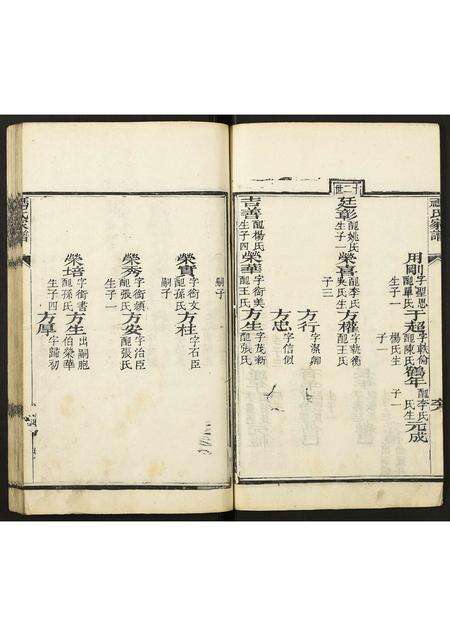 氏家譜
十二世
用剛 字聖思 配單氏 生子一
于超 字軼倫 配陳氏 楊氏生 子一
鶴年 配李氏 氏生 子一
元成
廷彰 配姚氏 生子一
榮喜 配李氏 吳氏生 子三
方權 字執衡 配王氏
方行 字潔卿
方忠 字信似
吉善 配楊氏 生子四
榮華 字衛美 配王氏
方生 字茂新 配張氏
嗣子
榮實 字衛文 配孫氏 嗣子
方柱 字石臣
榮秀 字衛鎮 配張氏 生子一
方安 字治臣 配張氏
榮培 字衛書 配孫氏 生子四
方生 出嗣胞 伯榮華
方厚 字歸初
氏家譜